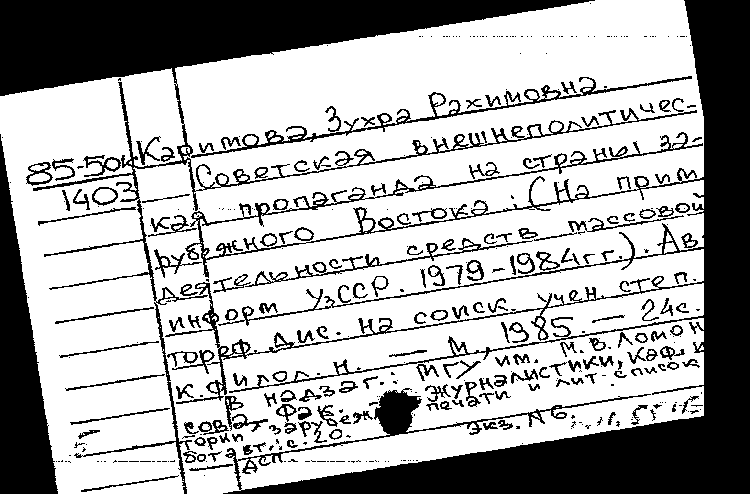 Каримова, Зухра Рахимовна.
85-50к Советская внешнеполитичес-
1403 кая пропаганда на страны за-
рубежного Востока: (На прим
деятельности средств массовой
информ УзССР. 1979-1984гг.). Ав-
тореф. дис. на соиск. учен. степ.
к. филол. н. — М., 1985. — 24с.
В надзаг.: МГУ им. М.В. Ломон
сова, Фак. журналистики, Каф. ис
тории зарубежн печати и лит. Список
бот авт.: с. 20.
Дсп. экз. №6.